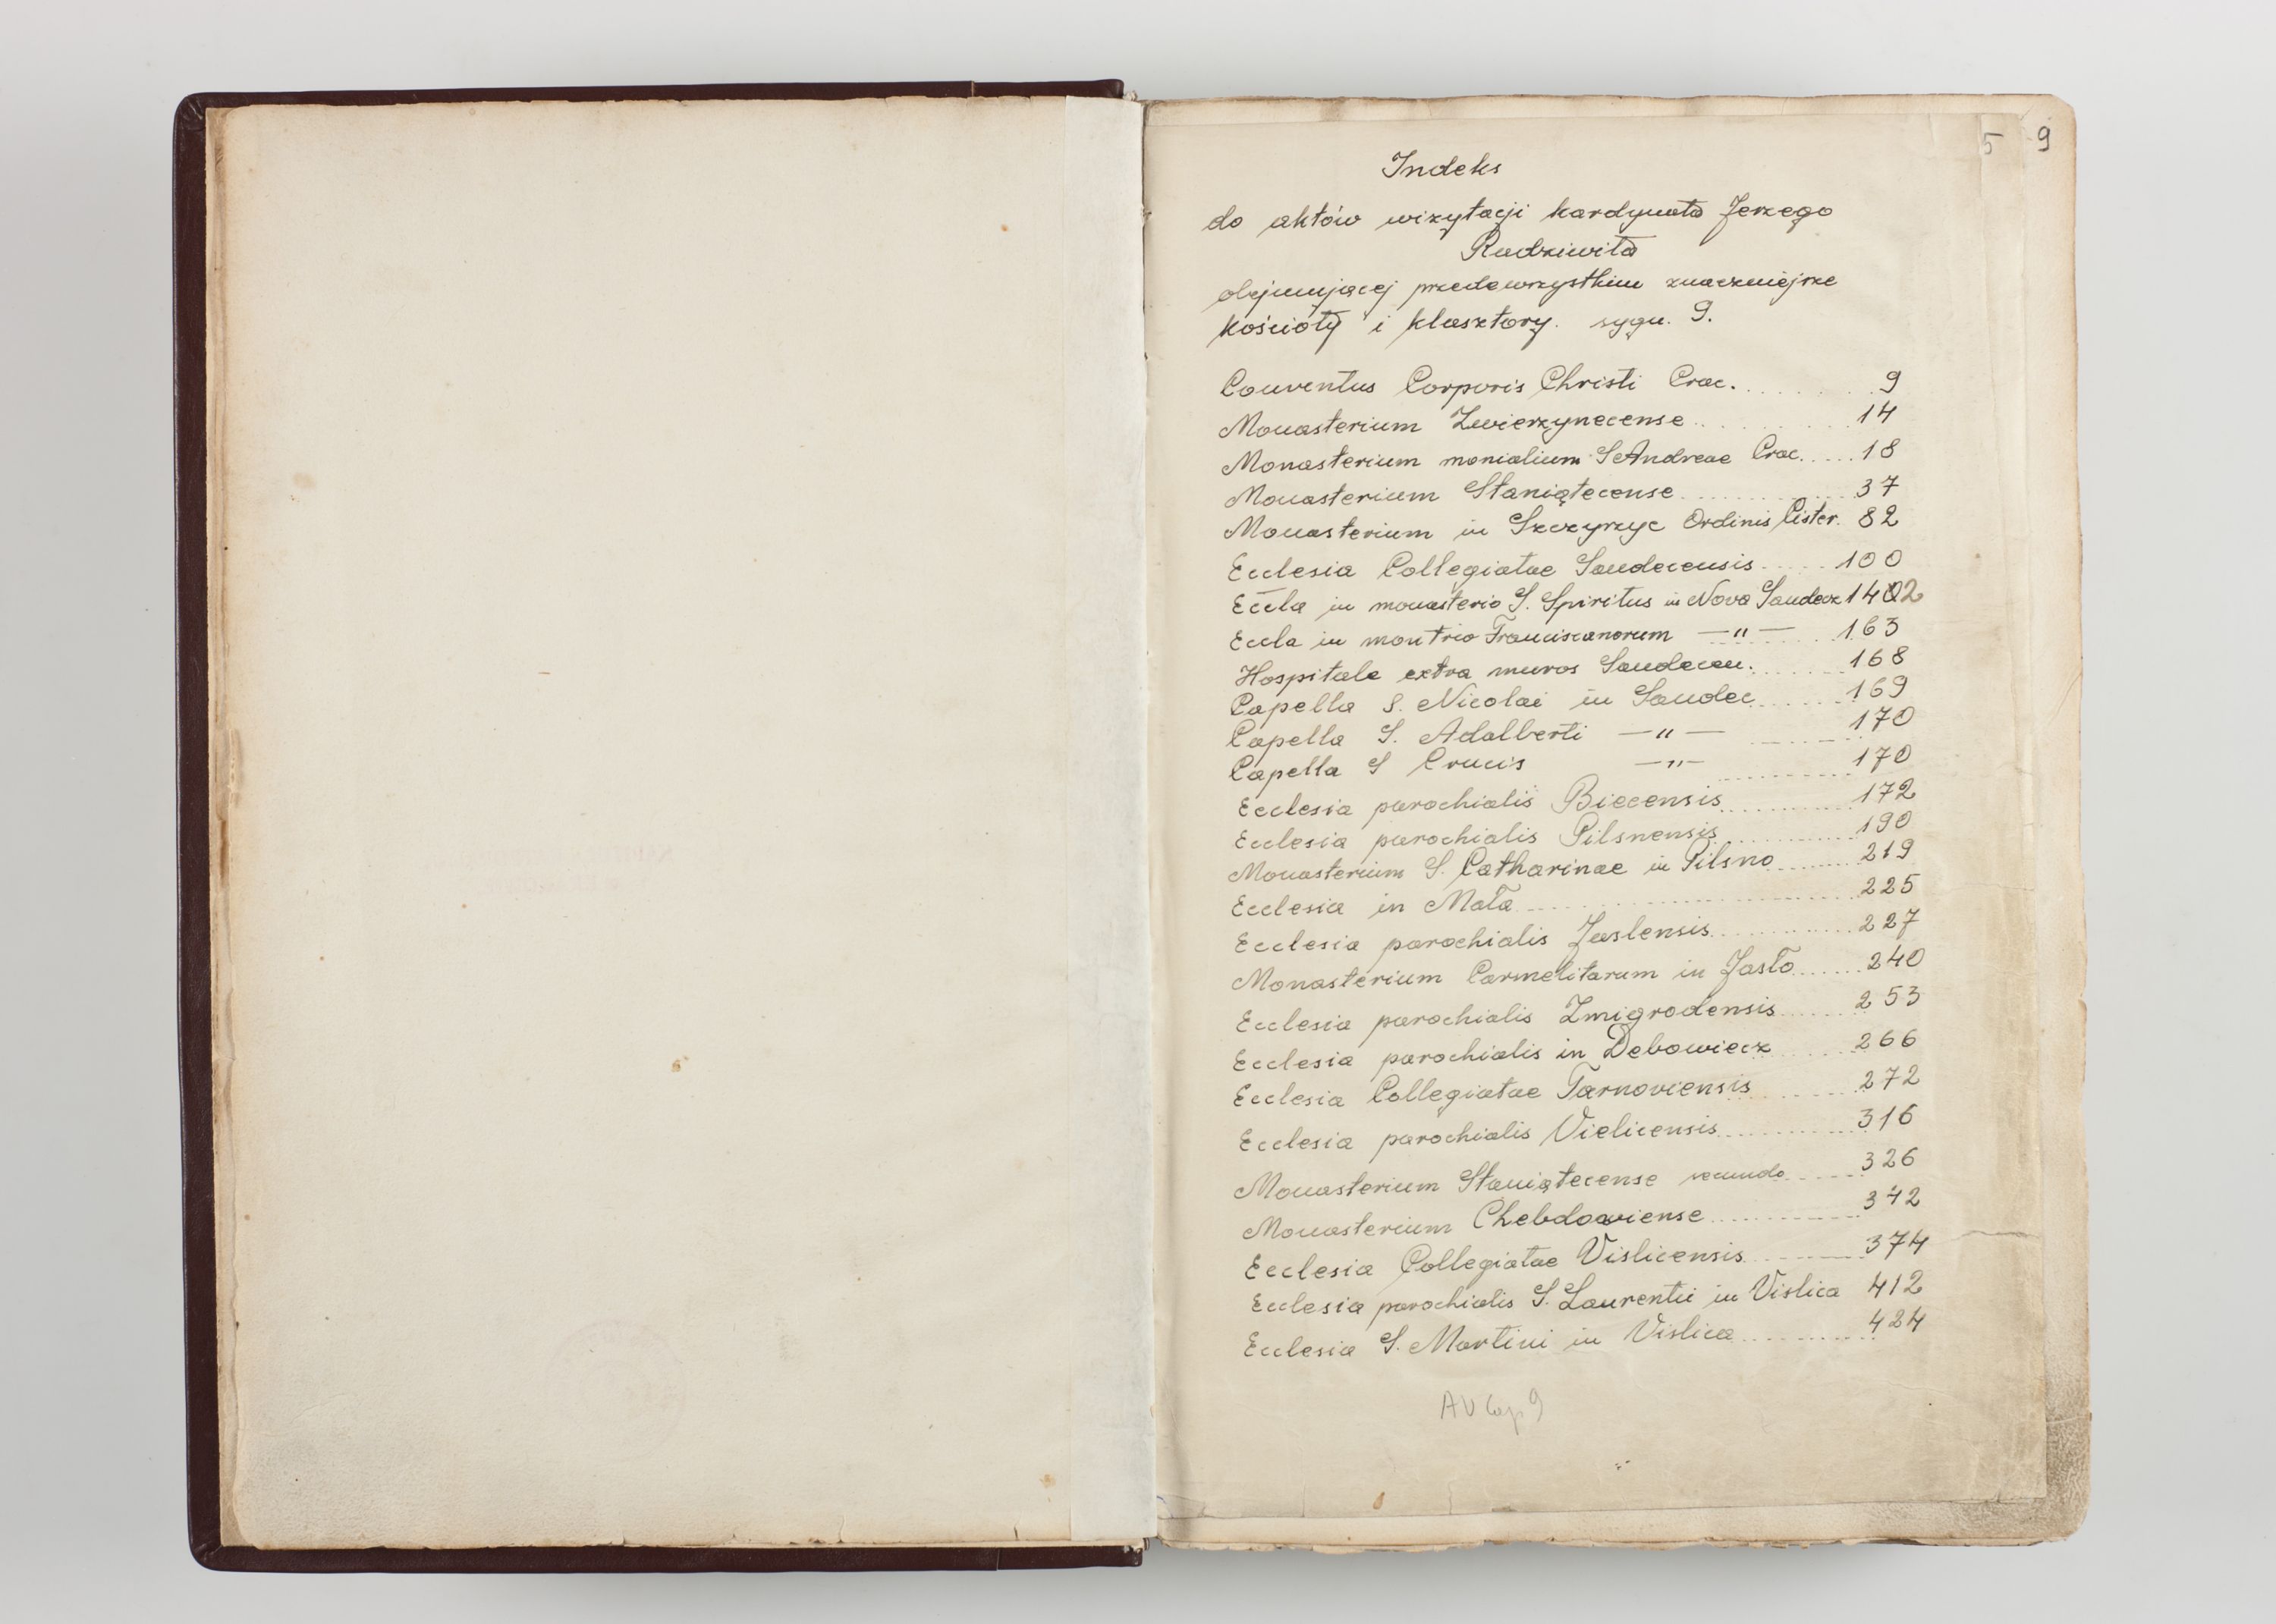 5 9
Indeks
do aktów wizytacji kardynała Jerzego
Radziwiła
obejmującej przedewszystkim znaczniejsze
kościoły i klasztory. sygn. 9.
Conventus Corporis Christi Crac. 9
Monasterium Zwierzynecense 14
Monasterium monialium S Andreae Crac. 18
Monasterium Staniątecense 37
Monasterium in Szczyrzyc Ordinis Cister. 82
Ecclesia Collegiatae Sandecensis 100
Eccla in monasterio S. Spiritus in Nova Sandecz
Eccla in montrio Franciscanorum —"— 163
Hospitale extra muros Sandecen. 168
Capella S. Nicolai in Sandec 169
Capella S. Adalberti —"— 170
Capella S Crucis —"— 170
Ecclesia parochialis Biecensis 172
Ecclesia parochialis Pilsnensis 190
Monasterium S. Catharinae in Pilsno 219
Ecclesia in Mała 225
Ecclesia parochialis Jaslensis 227
Monasterium Carmelitarum in Jasło 240
Ecclesia parochialis Zmigrodensis 253
Ecclesia parochialis in Debowiecz 266
Ecclesia Collegiatae Tarnoviensis 272
Ecclesia parochialis Vielicensis 316
Monasterium Staniątecense secundo 326
Monasterium Chebdoviense 342
Ecclesia Collegiatae Vislicensis 374
Ecclesia parochialis S. Laurentii in Vislica 412
Ecclesia S. Martini in Vislica 424
AV Cap 9